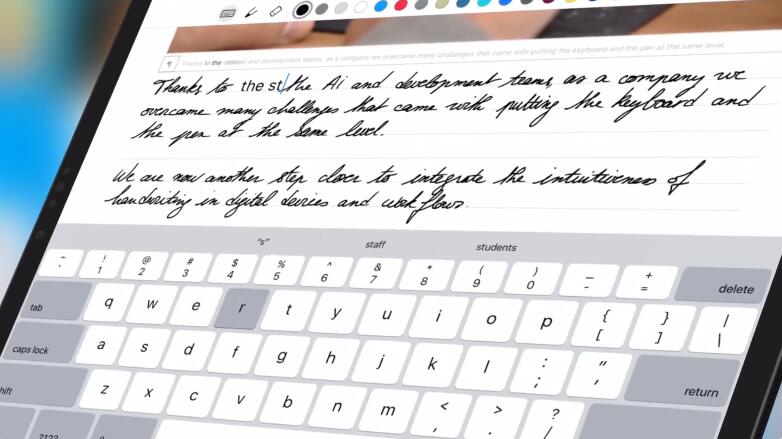 ¶ Thanks to the st the Ai and development teams, as a company we overcame many challenges that came with putting the keyboard and the pen at the same level.
Thanks to the st the Ai and development teams, as a company we
overcame many challenges that came with putting the keyboard and
the pen at the same level.
We are now another step closer to integrate the intuitiveness of
handwriting in digital devices and workflows.
"s" staff students
~ ` ! 1 @ 2 # 3 $ 4 % 5 ^ 6 & 7 * 8 ( 9 ) 0 _ - + = delete
tab q w e r t y u i o p { [ } ] | \
caps lock a s d f g h j k l : ; " ' return
shift z x c v b n m < , > . ? /
.?123